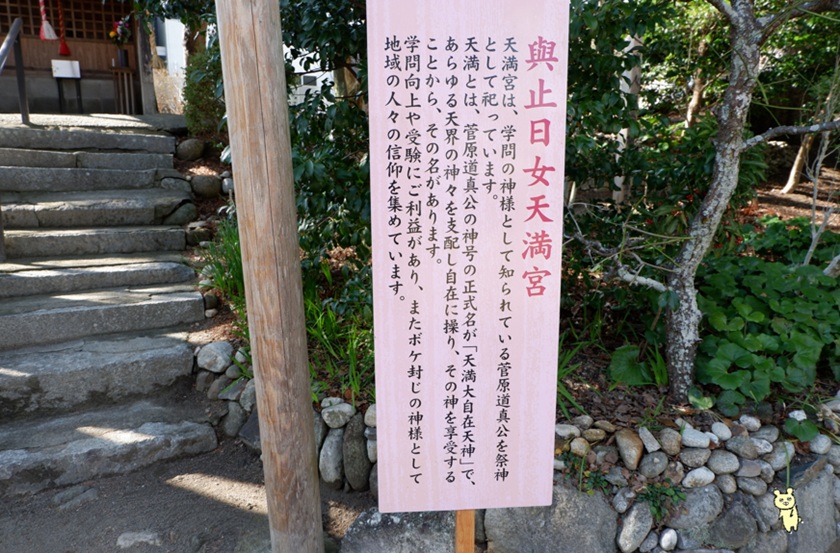 與止日女天満宮
天満宮は、学問の神様として知られている菅原道真公を祭神
として祀っています。
天満とは、菅原道真公の神号の正式名が「天満大自在天神」で、
あらゆる天界の神々を支配し自在に操り、その神を享受する
ことから、その名があります。
学問向上や受験にご利益があり、またボケ封じの神様として
地域の人々の信仰を集めています。